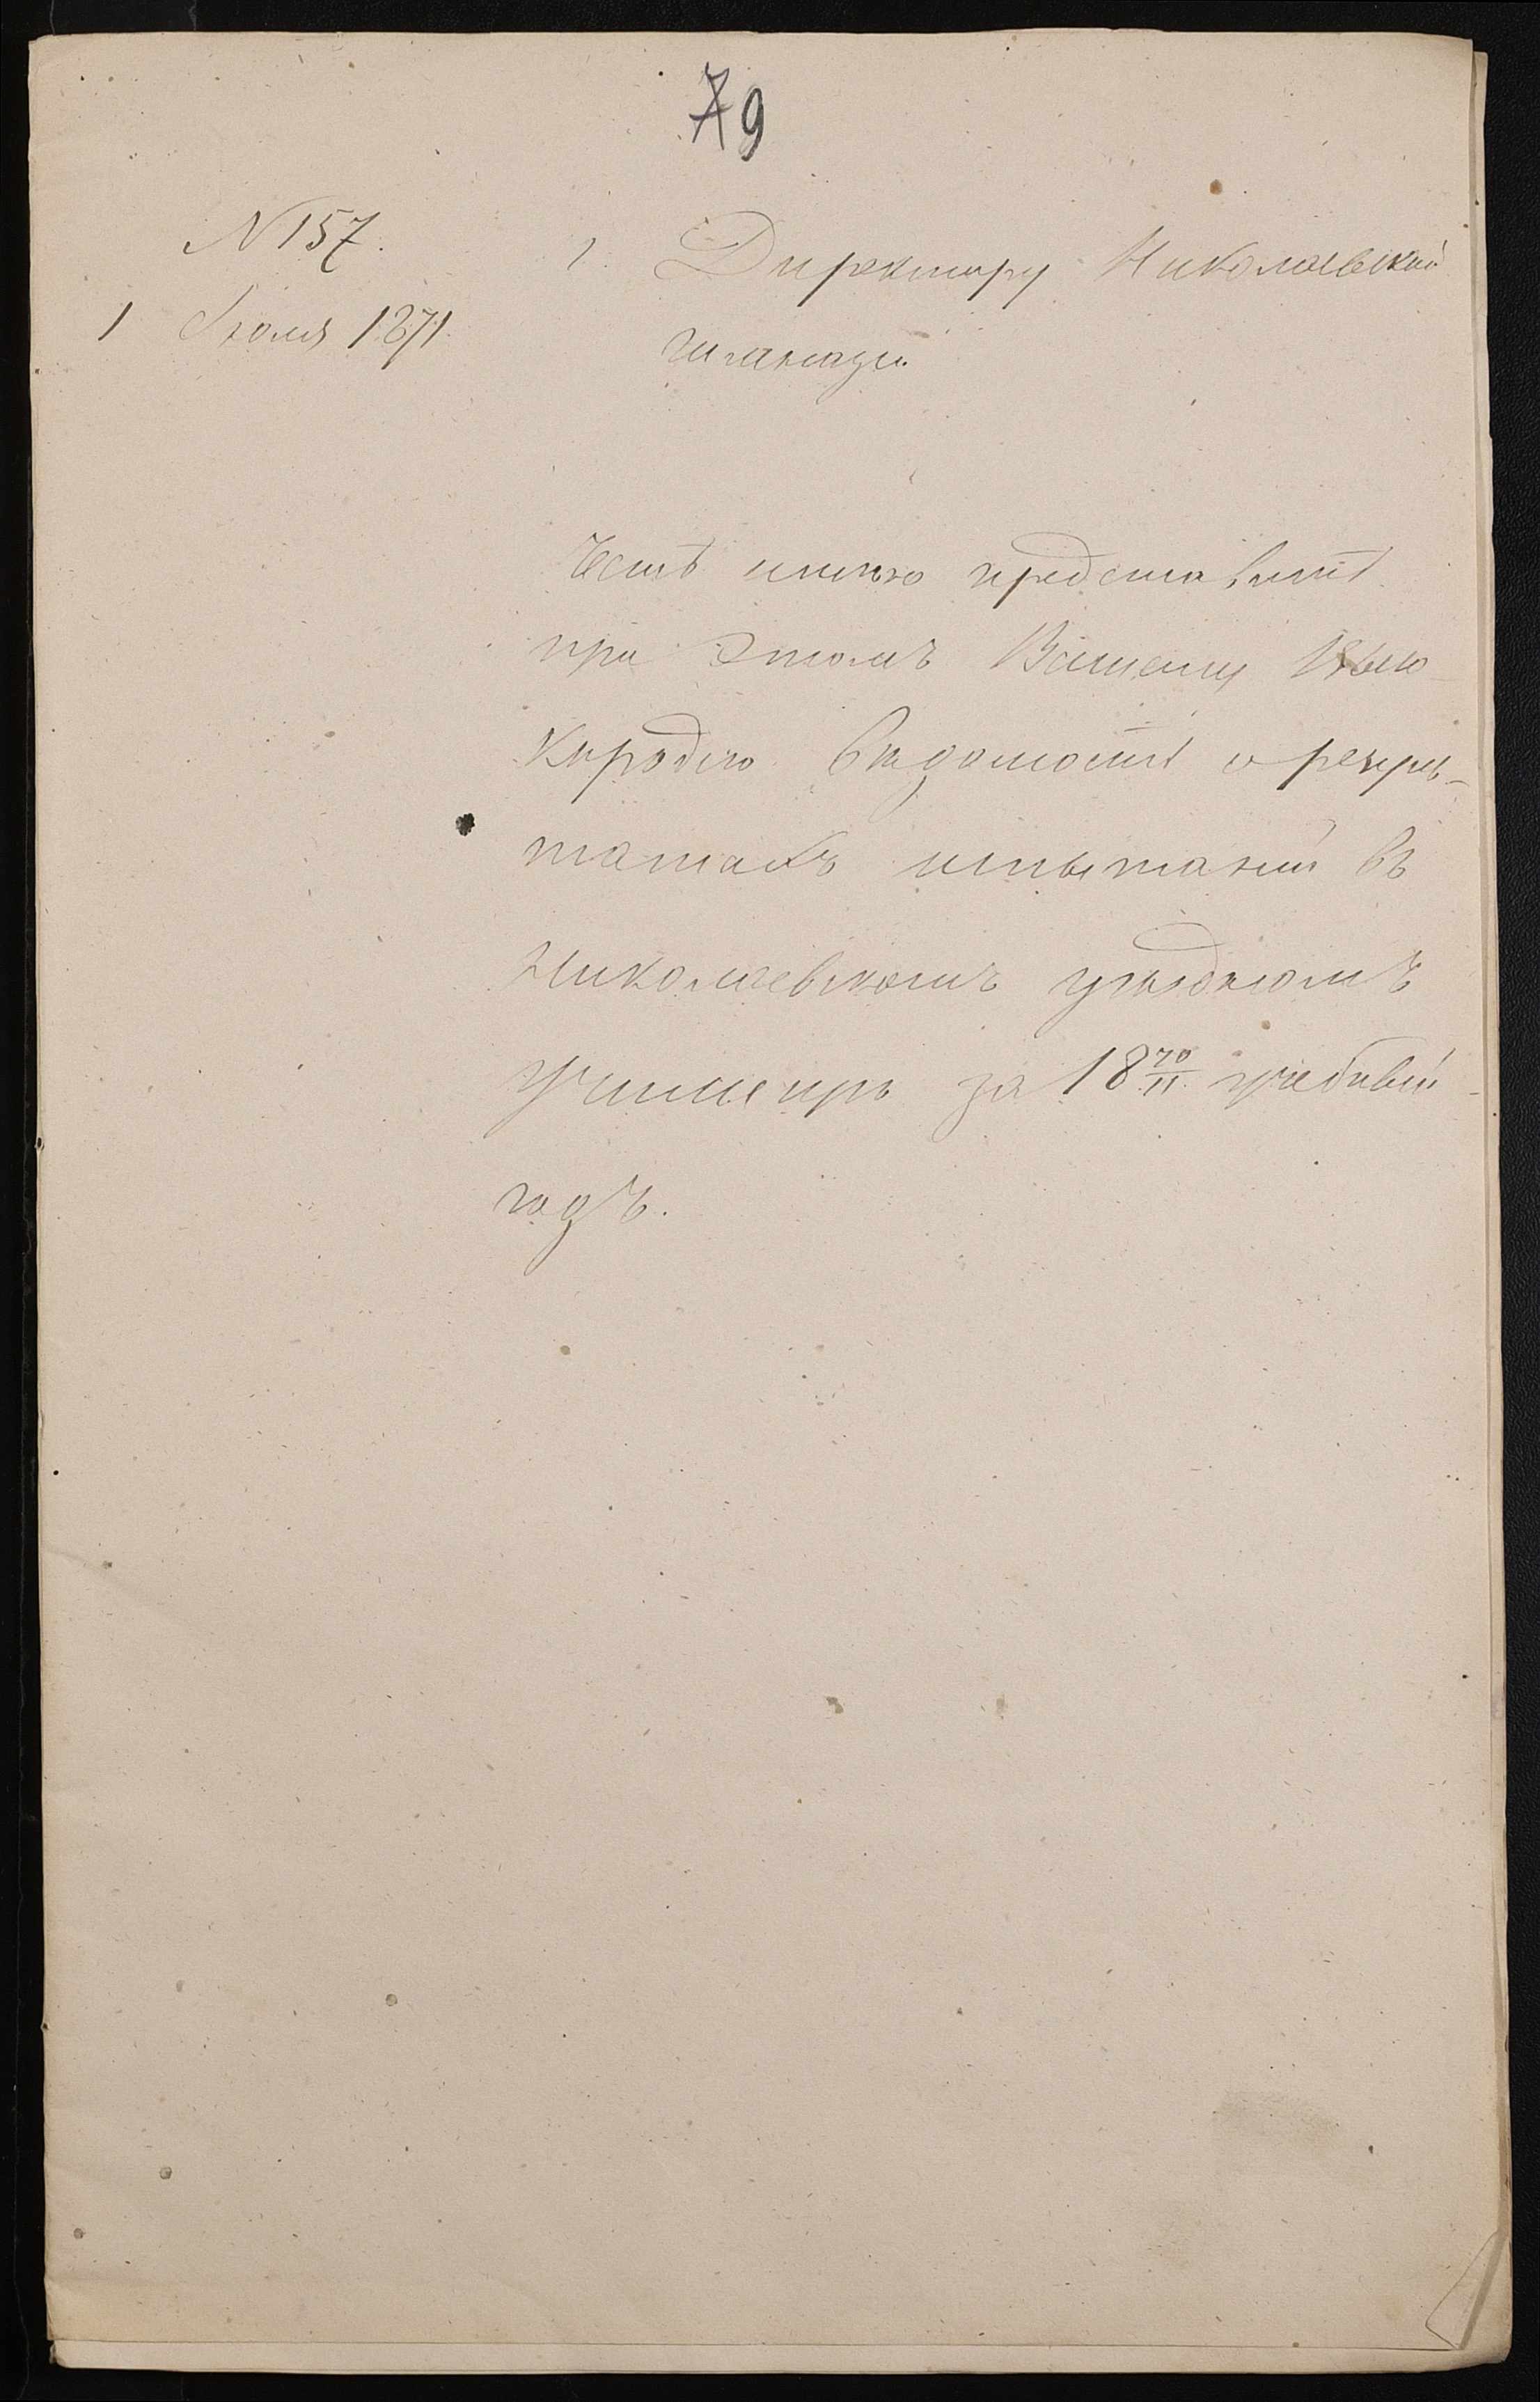 79
N 157.
1 Июля 1871
г. Директору Николаевской
гимназіи
Честь имѣю представить
при этомъ Вашему Высо-
кородію вѣдомость о резуль-
татахъ испытаній въ
Николаевскомъ уѣздномъ
училищѣ за 18 70/71 учебный
годъ.